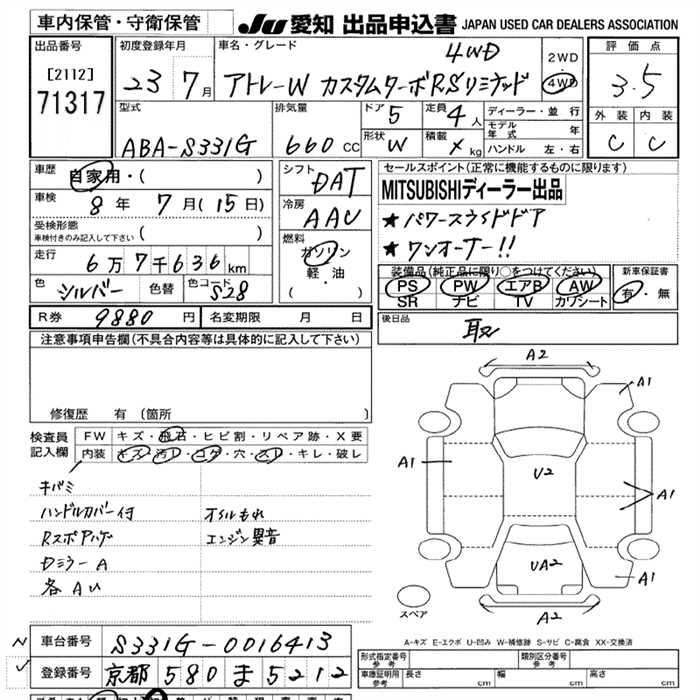 車内保管・守衛保管
JU 愛知 出品申込書 JAPAN USED CAR DEALERS ASSOCIATION
出品番号
[2112]
71317
初度登録年月
23 7月
車名・グレード
4WD
アトレーW カスタムターボRSリミテッド
2WD
4WD
評価点
3.5
型式
ABA-S331G
排気量
660 cc
ドア 5
形状 W
定員 4人
積載 × kg
ディーラー・並行
モデル年式 年
ハンドル 左・右
外装 内装
C C
車歴 自家用・( )
車検 8年 7月(15日)
受検形態
車検付きのみ記入して下さい ( )
走行 6万7千636km
色 シルバー 色替 色コード S28
シフト
DAT
冷房
AAC
燃料
ガソリン
軽・油
( ・ )
セールスポイント(正常に機能するものに限ります)
MITSUBISHIディーラー出品
★パワースライドドア
★ワンオーナー!!
装備品(純正品に限り○をつけてください)
PS PW エアB AW
SR ナビ TV カワシート
新車保証書
有・無
R券 9880円 名変期限 月 日
後日品
取
注意事項申告欄(不具合内容等は具体的に記入して下さい)
修復歴 有(箇所 )
検査員
記入欄
FW キズ・飛石・ヒビ割・リペア跡・X要
内装 キズ・汚レ・コゲ・穴・スレ・キレ・破レ
キバミ
ハンドルカバー付 オイルもれ
Rスポアハゲ エンジン異音
Dミラー A
各AU
A2
A1
A1
U2
A1
UA2
A1
A2
スペア
A-キズ E-エクボ U-凹み W-補修跡 S-サビ C-腐食 XX-交換済
車台番号 S331G-0016413
登録番号 京都 580 ま 5212
型式指定番号
参考
類別区分番号
参考
車庫証明用
参考
長さ cm 幅 cm 高さ cm